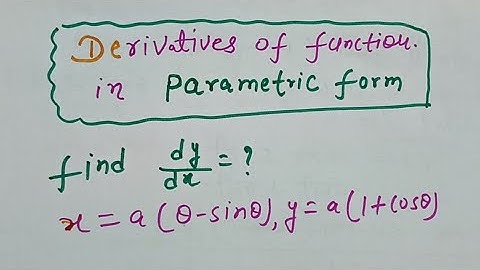 Derivatives of function.
in Parametric form
find dy/dx = ?
x = a (θ-sinθ), y = a(1+cosθ)